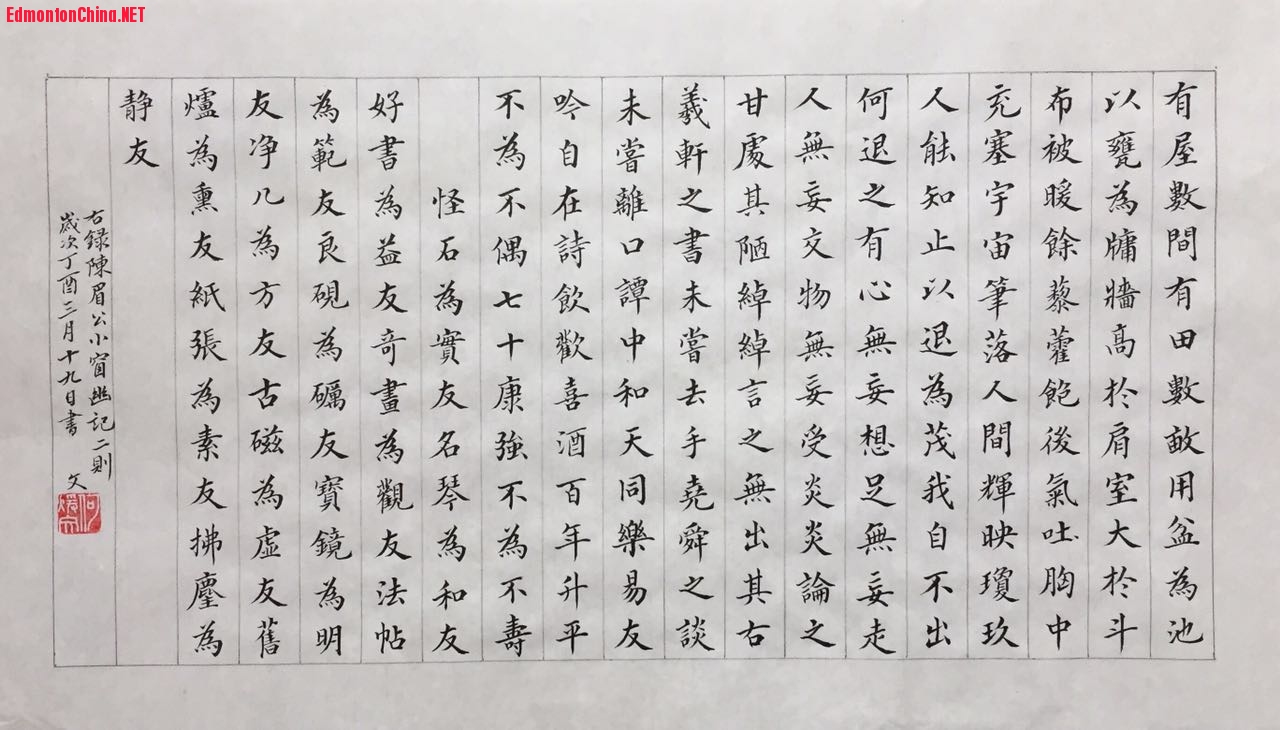 EdmontonChina.NET
有屋數間有田數畝用盆為池
以甕為牖牆高於肩室大於斗
布被暖餘藜藿飽後氣吐胸中
充塞宇宙筆落人間輝映瓊玖
人能知止以退為茂我自不出
何退之有心無妄想足無妄走
人無妄交物無妄受炎炎論之
甘處其陋綽綽言之無出其右
羲軒之書未嘗去手堯舜之談
未嘗離口譚中和天同樂易友
吟自在詩飲歡喜酒百年升平
不為不偶七十康強不為不壽
怪石為實友名琴為和友
好書為益友奇畫為觀友法帖
為範友良硯為礪友寶鏡為明
友净几為方友古磁為虛友舊
爐為熏友紙張為素友拂塵為
静友
右録陳眉公小窗幽記二則
歲次丁酉三月十九日書 文